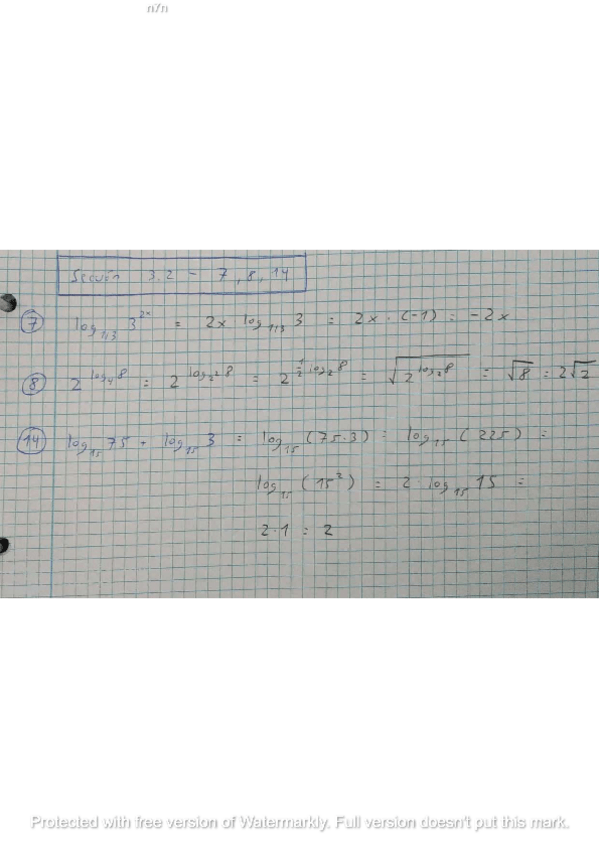 n7n
Sección 3.2 - 7, 8, 14
7 log_{1/3} 3^{2x} = 2x · log_{1/3} 3 = 2x · (-1) = -2x
8 2^{log_4 8} = 2^{log_{2^2} 8} = 2^{1/2 log_2 8} = √(2^{log_2 8}) = √8 = 2√2
14 log_{15} 75 + log_{15} 3 = log_{15} (75·3) = log_{15} (225) =
log_{15} (15^2) = 2 · log_{15} 15 =
2·1 = 2
Protected with free version of Watermarkly. Full version doesn't put this mark.